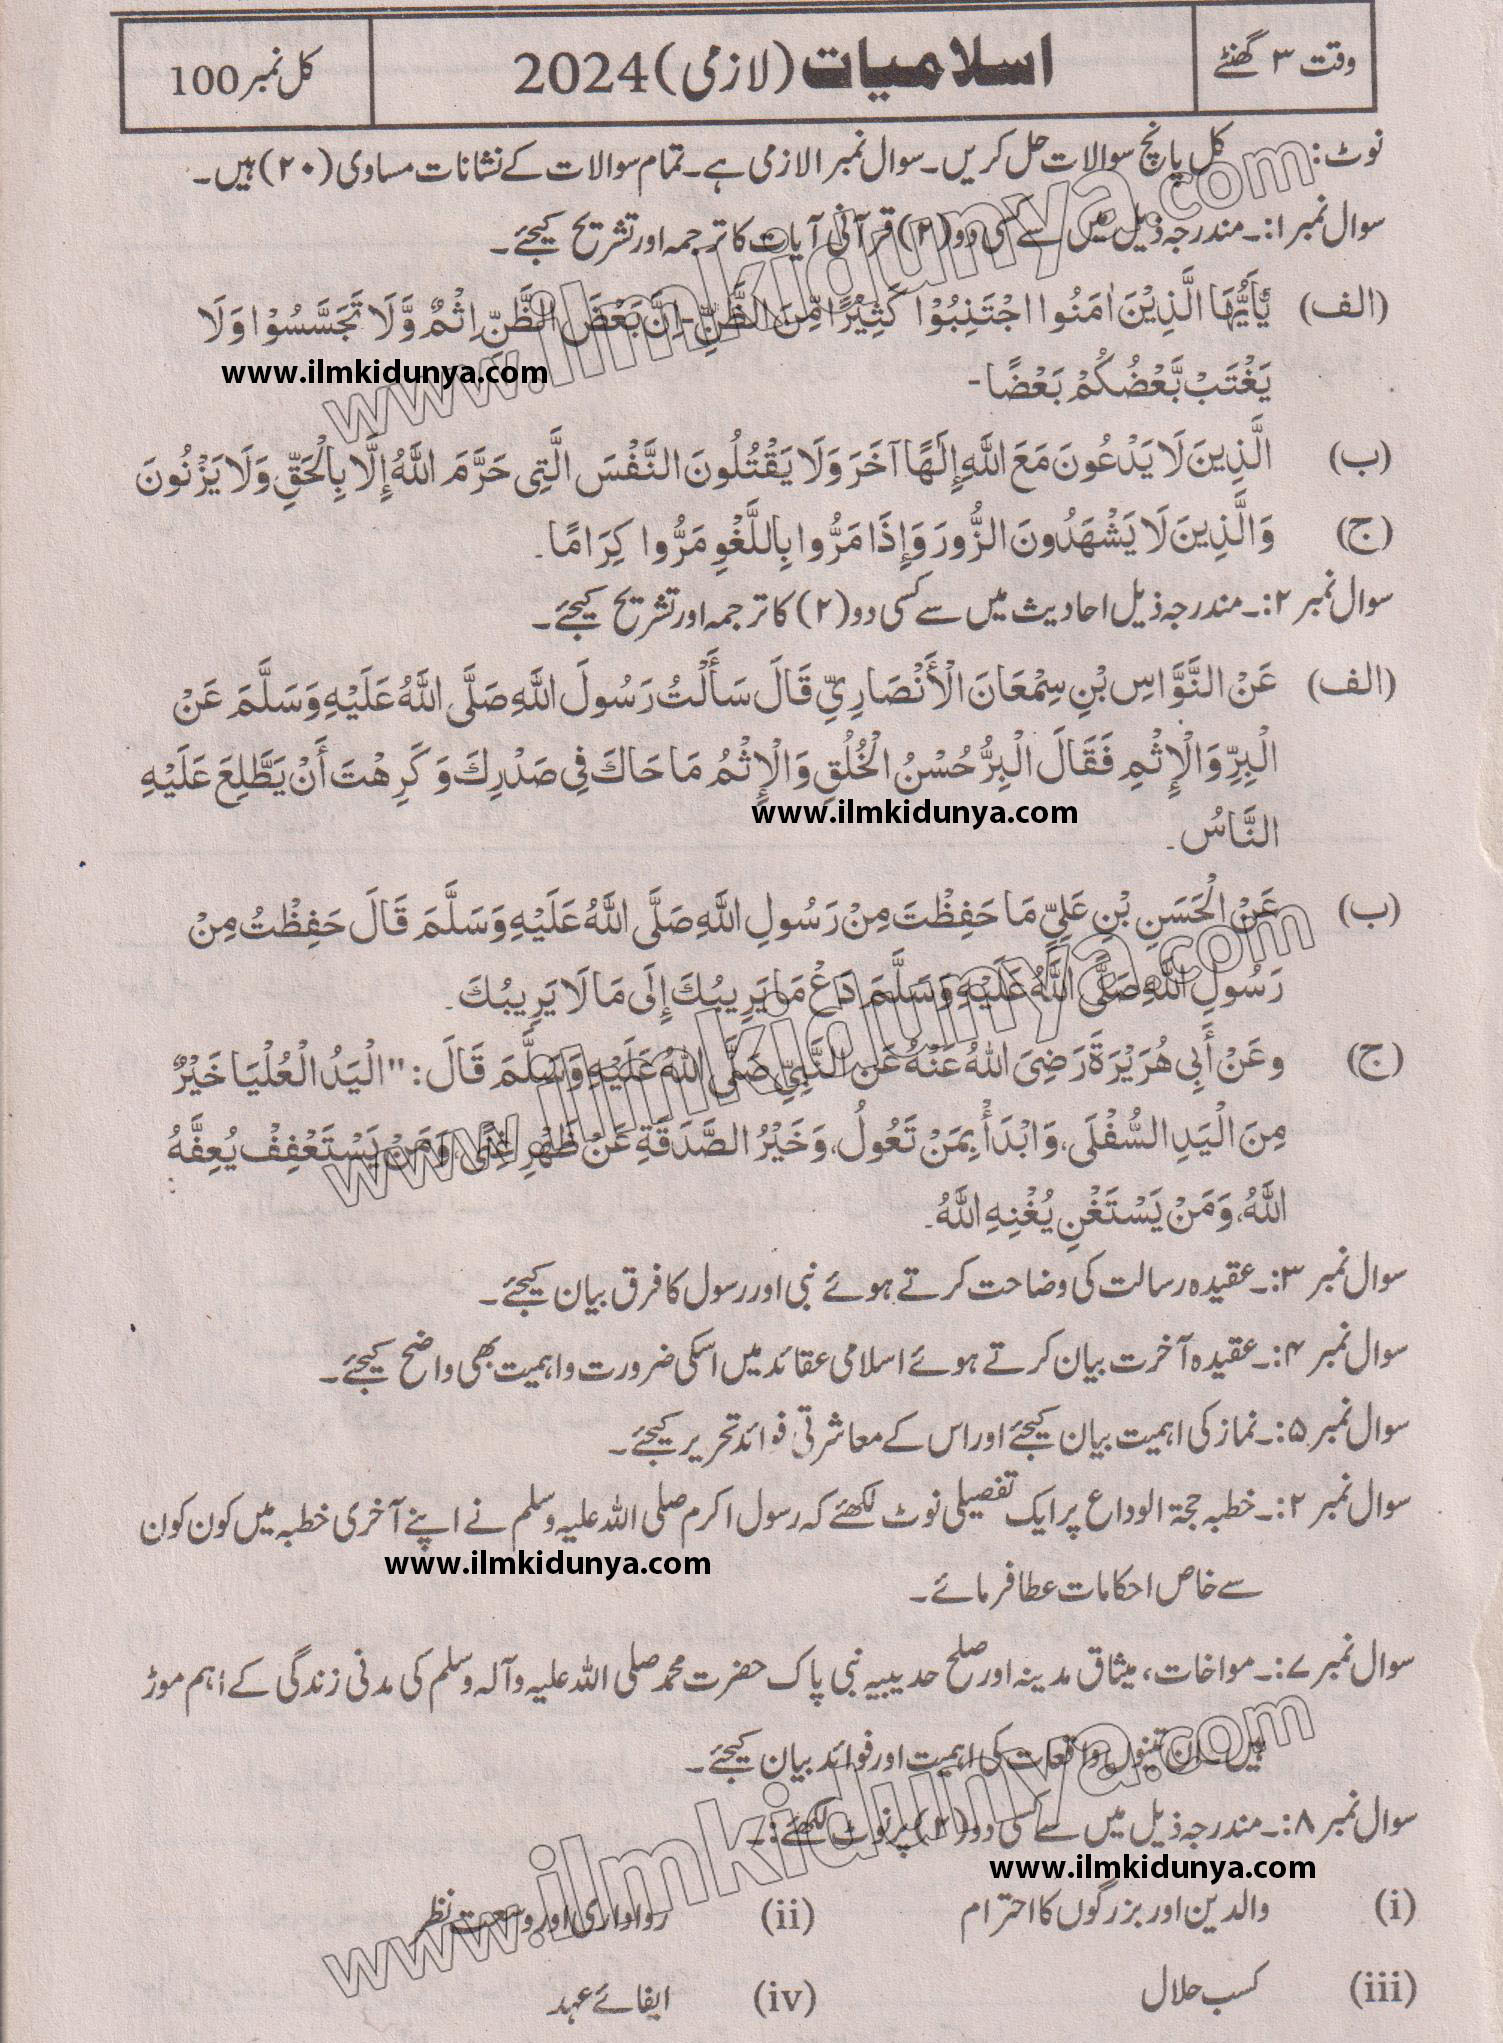 وقت ۳ گھنٹے
اسلامیات (لازمی) 2024
کل نمبر 100
نوٹ: کل پانچ سوالات حل کریں۔ سوال نمبر ا لازمی ہے۔ تمام سوالات کے نشانات مساوی (۲۰) ہیں۔
سوال نمبر ۱:۔ مندرجہ ذیل میں سے کسی دو (۲) قرآنی آیات کا ترجمہ اور تشریح کیجئے۔
(الف) يٰٓاَيُّهَا الَّذِيْنَ اٰمَنُوا اجْتَنِبُوْا كَثِيْرًا مِّنَ الظَّنِّ- اِنَّ بَعْضَ الظَّنِّ اِثْمٌ وَّلَا تَجَسَّسُوْا وَلَا
www.ilmkidunya.com
يَغْتَبْ بَّعْضُكُمْ بَعْضًا-
(ب) الَّذِينَ لَا يَدْعُونَ مَعَ اللَّهِ إِلَهًا آخَرَ وَلَا يَقْتُلُونَ النَّفْسَ الَّتِى حَرَّمَ اللَّهُ إِلَّا بِالْحَقِّ وَلَا يَزْنُونَ
(ج) وَالَّذِينَ لَا يَشْهَدُونَ الزُّورَ وَإِذَا مَرُّوا بِاللَّغْوِ مَرُّوا كِرَامًا۔
سوال نمبر ۲:۔ مندرجہ ذیل احادیث میں سے کسی دو (۲) کا ترجمہ اور تشریح کیجئے۔
(الف) عَنْ النَّوَّاسِ بْنِ سِمْعَانَ الْأَنْصَارِيِّ قَالَ سَأَلْتُ رَسُولَ اللَّهِ صَلَّى اللَّهُ عَلَيْهِ وَسَلَّمَ عَنْ
الْبِرِّ وَالْإِثْمِ فَقَالَ الْبِرُّ حُسْنُ الْخُلُقِ وَالْإِثْمُ مَا حَاكَ فِي صَدْرِكَ وَكَرِهْتَ أَنْ يَطَّلِعَ عَلَيْهِ
www.ilmkidunya.com
النَّاسُ۔
(ب) عَنْ الْحَسَنِ بْنِ عَلِيٍّ مَا حَفِظْتَ مِنْ رَسُولِ اللَّهِ صَلَّى اللَّهُ عَلَيْهِ وَسَلَّمَ قَالَ حَفِظْتُ مِنْ
رَسُولِ اللَّهِ صَلَّى اللَّهُ عَلَيْهِ وَسَلَّمَ دَعْ مَا يَرِيبُكَ إِلَى مَا لَا يَرِيبُكَ۔
(ج) وعَنْ أَبِي هُرَيْرَةَ رَضِيَ اللهُ عَنْهُ عَنِ النَّبِيِّ صَلَّى اللهُ عَلَيْهِ وَسَلَّمَ قَالَ: "الْيَدُ الْعُلْيَا خَيْرٌ
مِنَ الْيَدِ السُّفْلَى، وَابْدَأْ بِمَنْ تَعُولُ، وَخَيْرُ الصَّدَقَةِ عَنْ ظَهْرِ غِنًى، وَمَنْ يَسْتَعْفِفْ يُعِفَّهُ
اللَّهُ، وَمَنْ يَسْتَغْنِ يُغْنِهِ اللَّهُ۔
سوال نمبر ۳:۔ عقیدہ رسالت کی وضاحت کرتے ہوئے نبی اور رسول کا فرق بیان کیجئے۔
سوال نمبر ۴:۔ عقیدہ آخرت بیان کرتے ہوئے اسلامی عقائد میں اسکی ضرورت و اہمیت بھی واضح کیجئے۔
سوال نمبر ۵:۔ نماز کی اہمیت بیان کیجئے اور اس کے معاشرتی فوائد تحریر کیجئے۔
سوال نمبر ۲:۔ خطبہ حجۃ الوداع پر ایک تفصیلی نوٹ لکھئے کہ رسول اکرم صلی اللہ علیہ وسلم نے اپنے آخری خطبہ میں کون کون
www.ilmkidunya.com
سے خاص احکامات عطا فرمائے۔
سوال نمبر ۷:۔ مواخات، میثاق مدینہ اور صلح حدیبیہ نبی پاک حضرت محمد صلی اللہ علیہ وآلہ وسلم کی مدنی زندگی کے اہم موڑ
ہیں۔ ان تینوں واقعات کی اہمیت اور فوائد بیان کیجئے۔
سوال نمبر ۸:۔ مندرجہ ذیل میں سے کسی دو (۲) پر نوٹ لکھئے:۔
www.ilmkidunya.com
(i) والدین اور بزرگوں کا احترام (ii) رواداری اور وسعت نظر
(iii) کسب حلال (iv) ایفائے عہد
www.ilmkidunya.com
www.ilmkidunya.com
www.ilmkidunya.com